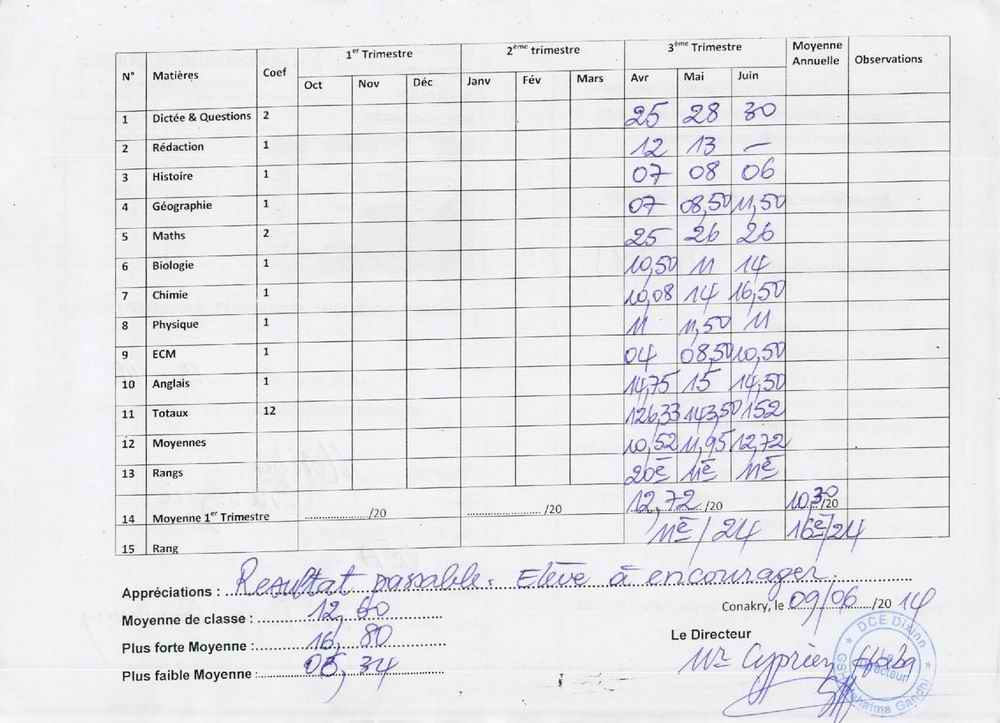 N° Matières Coef 1er Trimestre 2ème trimestre 3ème Trimestre Moyenne Annuelle Observations
Oct Nov Déc Janv Fév Mars Avr Mai Juin
1 Dictée & Questions 2 25 28 30
2 Rédaction 1 12 13 —
3 Histoire 1 07 08 06
4 Géographie 1 07 08,50 11,50
5 Maths 2 25 26 26
6 Biologie 1 10,50 11 14
7 Chimie 1 10,08 14 16,50
8 Physique 1 11 11,50 11
9 ECM 1 04 08,50 10,50
10 Anglais 1 14,75 15 14,50
11 Totaux 12 126,33 143,50 152
12 Moyennes 10,52 11,95 12,72
13 Rangs 20e 11e 11e
14 Moyenne 1er Trimestre ....................../20 ........................ /20 12,72../20 10,30/20
15 Rang 11e/24 16e/24
Appréciations : Resultat passable. Elève à encourager.
Moyenne de classe : 12,60
Conakry, le 09/06/20 14
Plus forte Moyenne : 16,80
Le Directeur
Plus faible Moyenne : 05,34
Mr Cyprien
DCE Dixinn
Le Directeur
Mahatma Gandhi